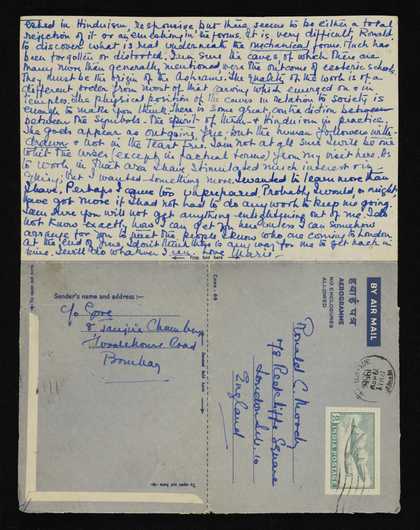 in Hinduism. Responsive but there seems to be either a total
rejection of it or an in the forms. It is very difficult Ronald
to discover what is real underneath the mechanical forms. Much has
been forgotten or distorted. I'm sure the caves, of which there are
many more than generally mentioned were the outcome of esoteric schools.
They must be the origin of the Ashrams. The quality of the work is of a
different order from most of that carving which emerged on & in
temples. The physical position of the caves in relation to society is
enough to make you think. There is some great contradiction between
between the Symbols. The Spirit of Hindu & Hinduism in practice.
The gods appear as outgoing free, but the human followers with-
drawn & not in the least free. I am not at all sure I will be one
whit the wiser (except in factual terms) from my visit here. As
to work in that area I have stimulated much interest or
. But I wanted something more. I wanted to learn more than
I have. Perhaps I came too unprepared. Probably I would or might
have got more if I had not had to do any work to keep me going.
I am sure you will not get anything enlightening out of me. I do
not know exactly how I can get you here unless I can somehow
arrange for you to meet the people I know who are coming to London
at the end of June. I don't think there is any way for me to get back in
time. I will do whatever I can. Love Marie-
First fold here
Sender's name and address :—
c/o Gore
8 Sanjiv Chambers
Road
Bombay
To open cut here
Second fold here
BY AIR MAIL
हवाई पत्र
AEROGRAMME
NO ENCLOSURES
ALLOWED
Ronald C. Moody
7/8 Redcliffe Square
London S.W. 10
England
INDIA POSTAGE